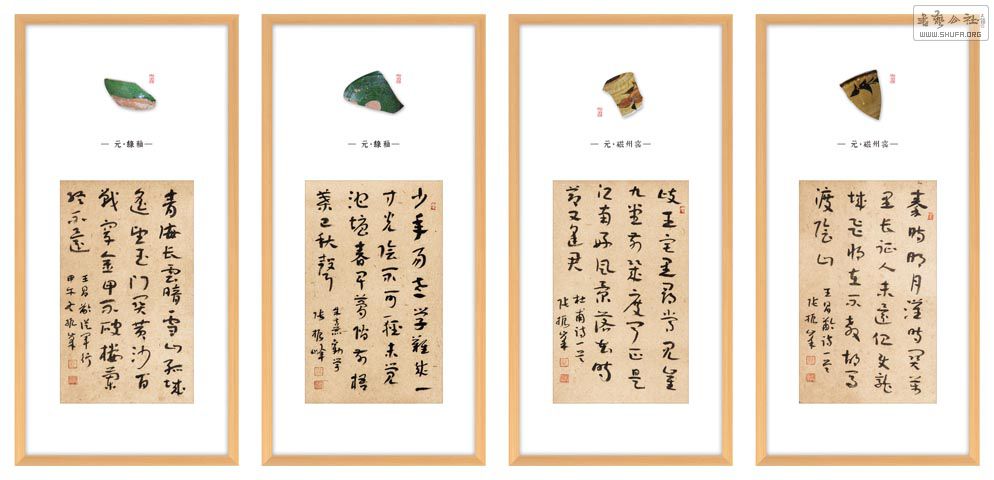 書藝公社
WWW.SHUFA.ORG
— 元·綠釉 —
青海长雲暗雪山孤城
遥望玉门关黄沙百
战穿金甲不破楼兰
终不还
王昌龄從军行
甲午
振峰
— 元·綠釉 —
少年易老学難成一
寸光陰不可轻未觉
池塘春草梦階前梧
葉已秋聲
朱熹勸学
张振峰
— 元·磁州窑 —
岐王宅里尋常见崔
九堂前几度闻正是
江南好风景落花时
节又逢君
杜甫诗一首
张振峰
— 元·磁州窑 —
秦时明月漢时关万
里长征人未還但使龍
城飞将在不教胡马
渡陰山
王昌龄诗一首
张振峰